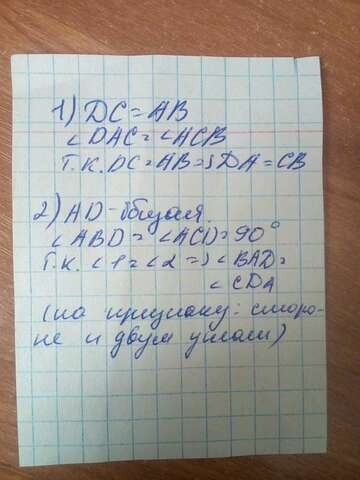 1) DC = AB
∠DAC = ∠ACB
Т.К. DC = AB => DA = CB
2) AD - общая.
∠ABD = ∠ACD = 90°
Т.К. ∠1 = ∠2 => ∠BAD =
∠CDA
(по признаку: сторо-
не и двум углам)